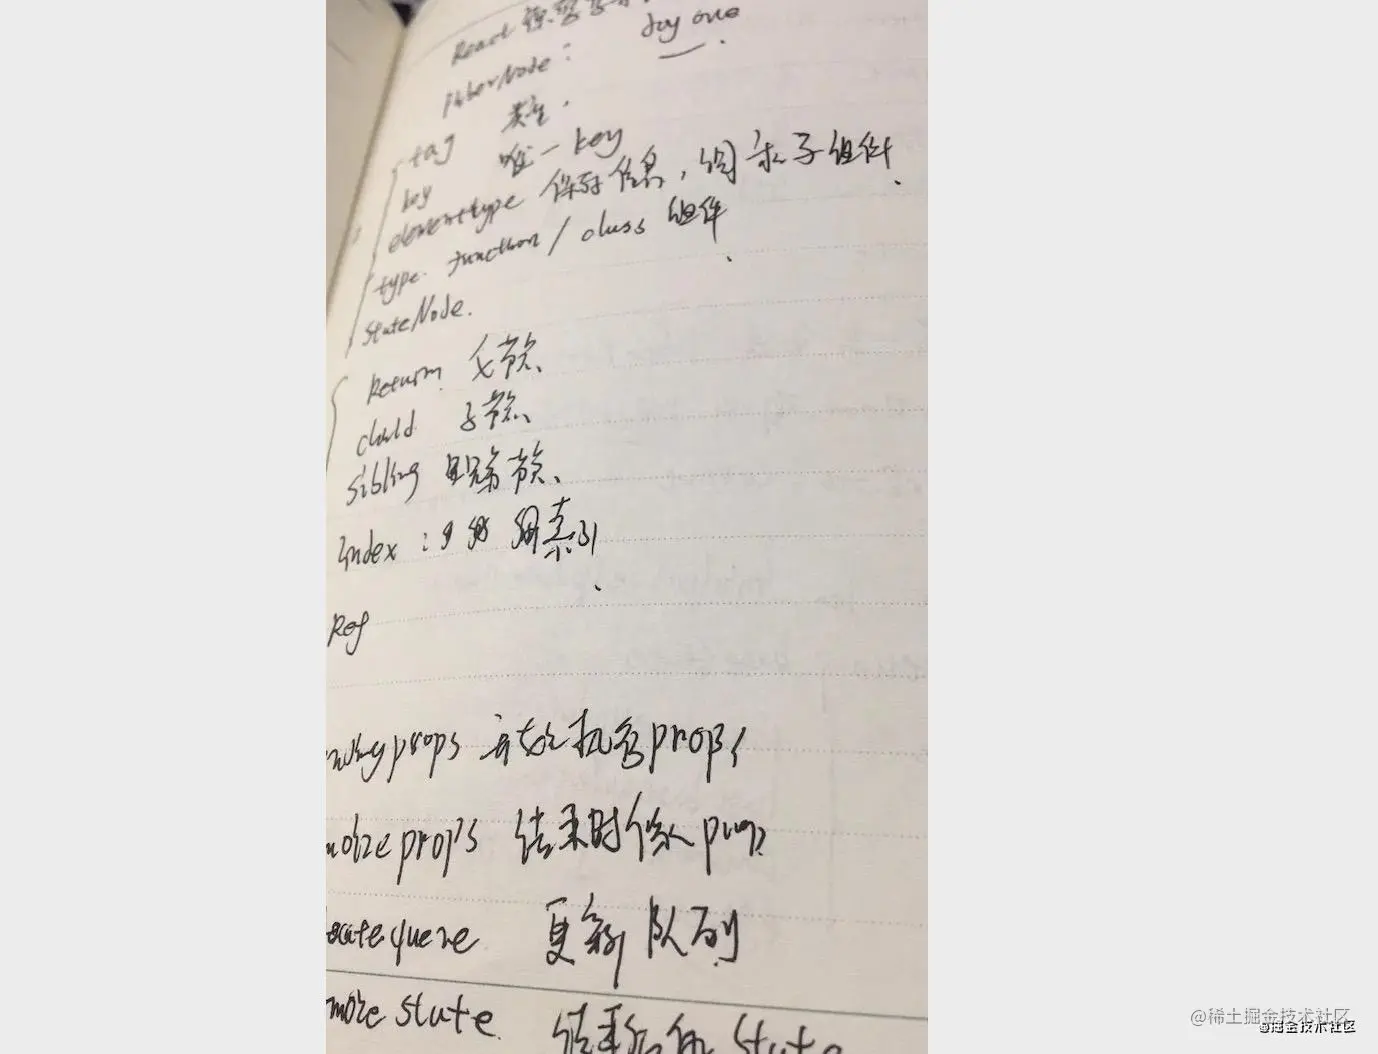 React
day one
FiberNode :
tag 类型.
key 唯一 key
elementtype 保存信息,
type function / class 组件
StateNode.
Return 父节点
child 子节点
sibling 兄弟节点
Index : 索引
Ref
props 开始执行 props
moize props 结束时
queue 更新 队列
moize state 结束后的 State
@稀土掘金技术社区
@掘金技术社区